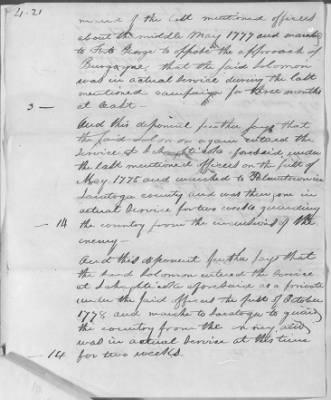 4.21
mand of the last mentioned officers
about the middle May 1777 and marched
to Fort George to oppose the approach of
Burgoyne, that the said Solomon
was in actual service during the last
mentioned campaign for three months
3 — at least —
And this deponent further says that
the said Solomon again entered the
service at aforesaid under
the last mentioned officers on the first of
May 1778 and marched to in
Saratoga county and was then in
actual service for two weeks guarding
14 the country from the incursions of the
enemy —
And this deponent further says that
the said Solomon entered the service
at aforesaid as a private
under the said officers the first of October
1778 and marched to Saratoga to guard
the country from the enemy and
was in actual service at this time
14 for two weeks